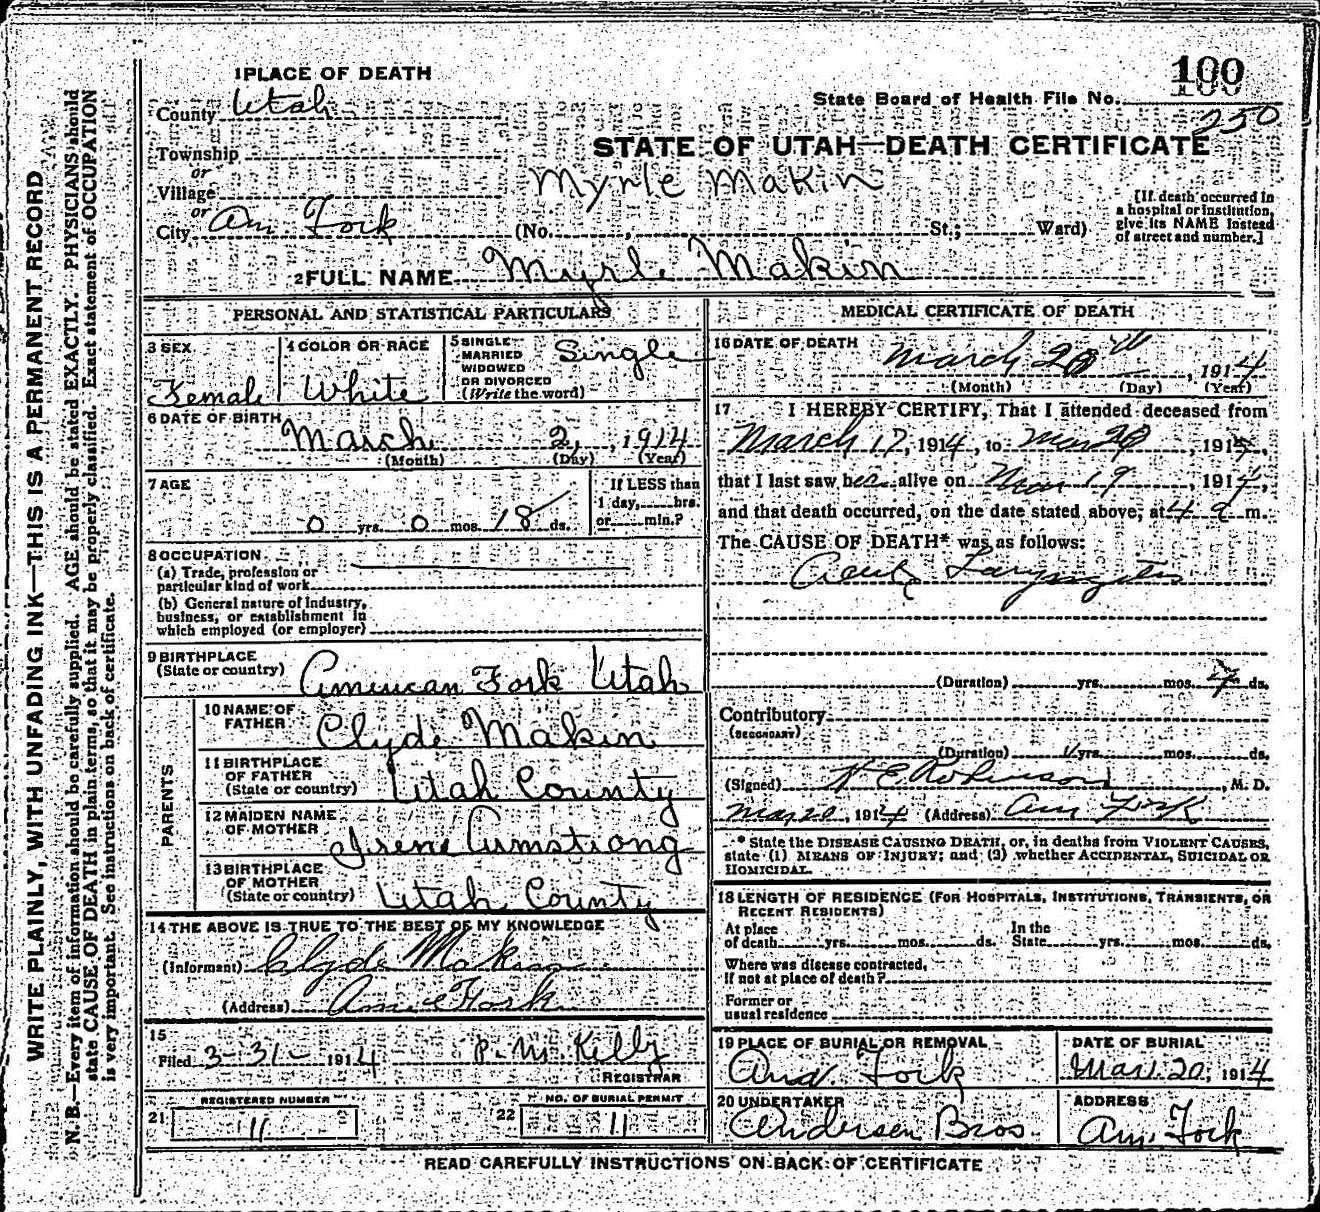 WRITE PLAINLY, WITH UNFADING INK—THIS IS A PERMANENT RECORD
N. B.—Every item of information should be carefully supplied. AGE should be stated EXACTLY. PHYSICIANS should
state CAUSE OF DEATH in plain terms, so that it may be properly classified. Exact statement of OCCUPATION
is very important. See instructions on back of certificate.
1 PLACE OF DEATH
100
County Utah
State Board of Health File No.
250
Township
STATE OF UTAH—DEATH CERTIFICATE
or
Village
Myrle Makin
or
City Am Fork (No. , St.; Ward)
[If death occurred in
a hospital or institution,
give its NAME instead
of street and number.]
2 FULL NAME Myrle Makin
PERSONAL AND STATISTICAL PARTICULARS
3 SEX
Female
4 COLOR OR RACE
White
5 SINGLE
MARRIED
WIDOWED
OR DIVORCED
(Write the word)
Single
6 DATE OF BIRTH
March 2, 1914
(Month) (Day) (Year)
7 AGE
0 yrs. 0 mos. 18 ds.
If LESS than
1 day, hrs.
or min.?
8 OCCUPATION
(a) Trade, profession or
particular kind of work
(b) General nature of industry,
business, or establishment in
which employed (or employer)
9 BIRTHPLACE
(State or country) American Fork Utah
PARENTS
10 NAME OF
FATHER Clyde Makin
11 BIRTHPLACE
OF FATHER
(State or country) Utah County
12 MAIDEN NAME
OF MOTHER Irene Armstrong
13 BIRTHPLACE
OF MOTHER
(State or country) Utah County
14 THE ABOVE IS TRUE TO THE BEST OF MY KNOWLEDGE
(Informant) Clyde Makin
(Address) Am Fork
15
Filed 3-31- 1914 P. M. Kelly
REGISTRAR
21 REGISTERED NUMBER
11
22 NO. OF BURIAL PERMIT
11
MEDICAL CERTIFICATE OF DEATH
16 DATE OF DEATH
March 20th, 1914
(Month) (Day) (Year)
17 I HEREBY CERTIFY, That I attended deceased from
March 17, 1914, to Mar 20, 1914,
that I last saw her alive on Mar 19, 1914,
and that death occurred, on the date stated above, at 4 a m.
The CAUSE OF DEATH* was as follows:
Acute Laryngitis
(Duration) yrs. mos. ds.
Contributory
(SECONDARY)
(Duration) yrs. mos. ds.
(Signed) H E Robinson, M. D.
Mar 20, 1914 (Address) Am Fork
* State the DISEASE CAUSING DEATH, or, in deaths from VIOLENT CAUSES,
state (1) MEANS OF INJURY; and (2) whether ACCIDENTAL, SUICIDAL OR
HOMICIDAL.
18 LENGTH OF RESIDENCE (FOR HOSPITALS, INSTITUTIONS, TRANSIENTS, OR
RECENT RESIDENTS)
At place
of death yrs. mos. ds.
In the
State yrs. mos. ds.
Where was disease contracted,
If not at place of death?
Former or
usual residence
19 PLACE OF BURIAL OR REMOVAL
Am. Fork
DATE OF BURIAL
Mar. 20, 1914
20 UNDERTAKER
Andersen Bros
ADDRESS
Am. Fork
READ CAREFULLY INSTRUCTIONS ON BACK OF CERTIFICATE